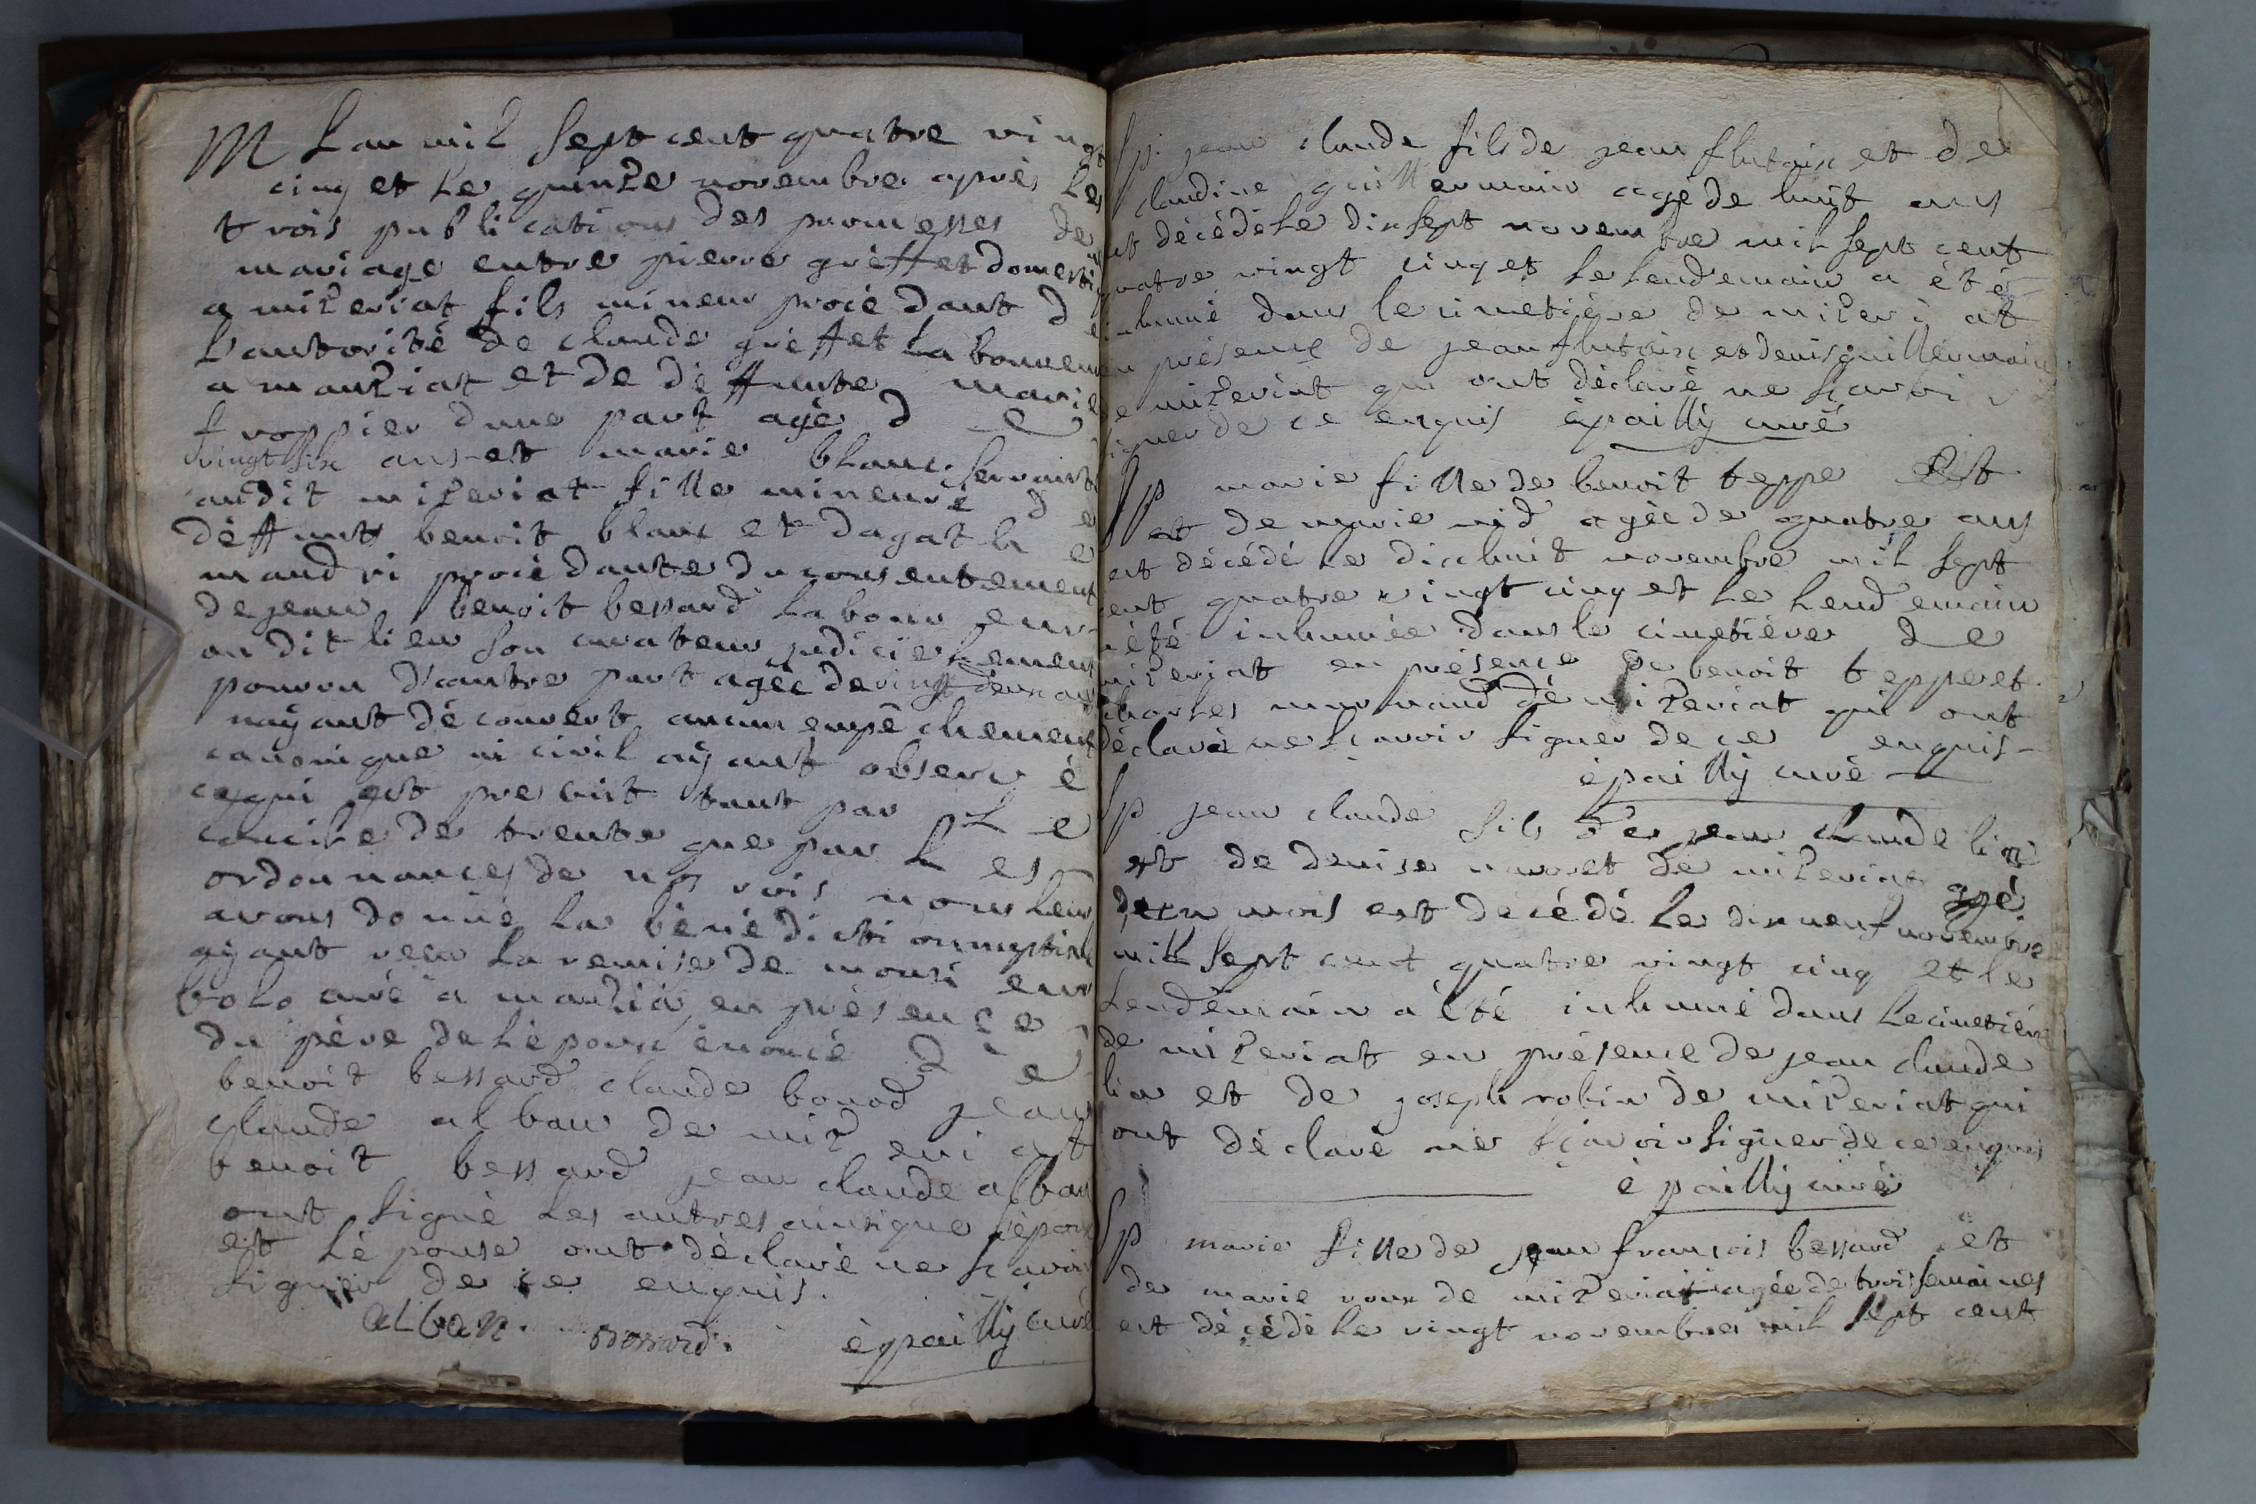 M Lan mil sept cent quatre vingt
cinq et le quinze novembre après les
trois publications des promesses de
mariage entre pierre grèffet domestiq
a mizeriat fils mineur procédant de
l'autorité de claude grèffet laboureur
a manziat et de dèffunte marie
d'une part agé de
vingt six ans et marie blanc servante
audit mizeriat fille mineure de
dèffunts benoit blanc et dagathe
procédante du consentement
de jean benoit bessard laboureur
au dit lieu son curateur judicièlement
pourvu d'autre part agée de vingt deux ans
nayant découvert aucun empêchement
canonique ni civil ayant observé
ce qui est prescrit tant par le
concile de trente que par les
ordonnances de nos rois nous leur
avons donné la bénédiction nuptiale
ayant reçu la remise de monsieur
curé a manziat en présence
du père de lépoux énoncé de
benoit bessard claude bonod jean
claude alban de mizeriat
benoit bessard jean claude alban
ont signé les autres ainsi que lépoux
et lépouse ont déclaré ne sçavoir
signer de ce enquis.
alban. bessard. épailly curé
Sp. jean claude fils de jean flutaix et de
claudine guillermain agé de huit ans
est décédé le dixsept novembre mil sept cent
quatre vingt cinq et le lendemain a été
inhumé dans le cimetière de mizeriat
en présence de jean flutaix et denis guillermain
de mizeriat qui ont déclaré ne sçavoir
signer de ce enquis épailly curé
Sp marie fille de benoit teppe et
et de marie nid agée de quatre ans
est décédé le dixhuit novembre mil sept
cent quatre vingt cinq et le lendemain
a été inhumée dans le cimetière de
mizeriat en présence de benoit teppe et
charles de mizeriat qui ont
déclaré ne sçavoir signer de ce enquis
épailly curé
Sp jean claude fils de jean claude lion
et de denise de mizeriat agé
mois est decédé le dixneuf novembre
mil sept cent quatre vingt cinq et le
lendemain a été inhumé dans le cimetière
de mizeriat en présence de jean claude
lion et de joseph robin de mizeriat qui
ont déclaré ne sçavoir signer de ce enquis
épailly curé
Sp marie fille de jean françois bessard et
de marie roux de mizeriat agée de trois semaines
est décédé le vingt novembre mil sept cent